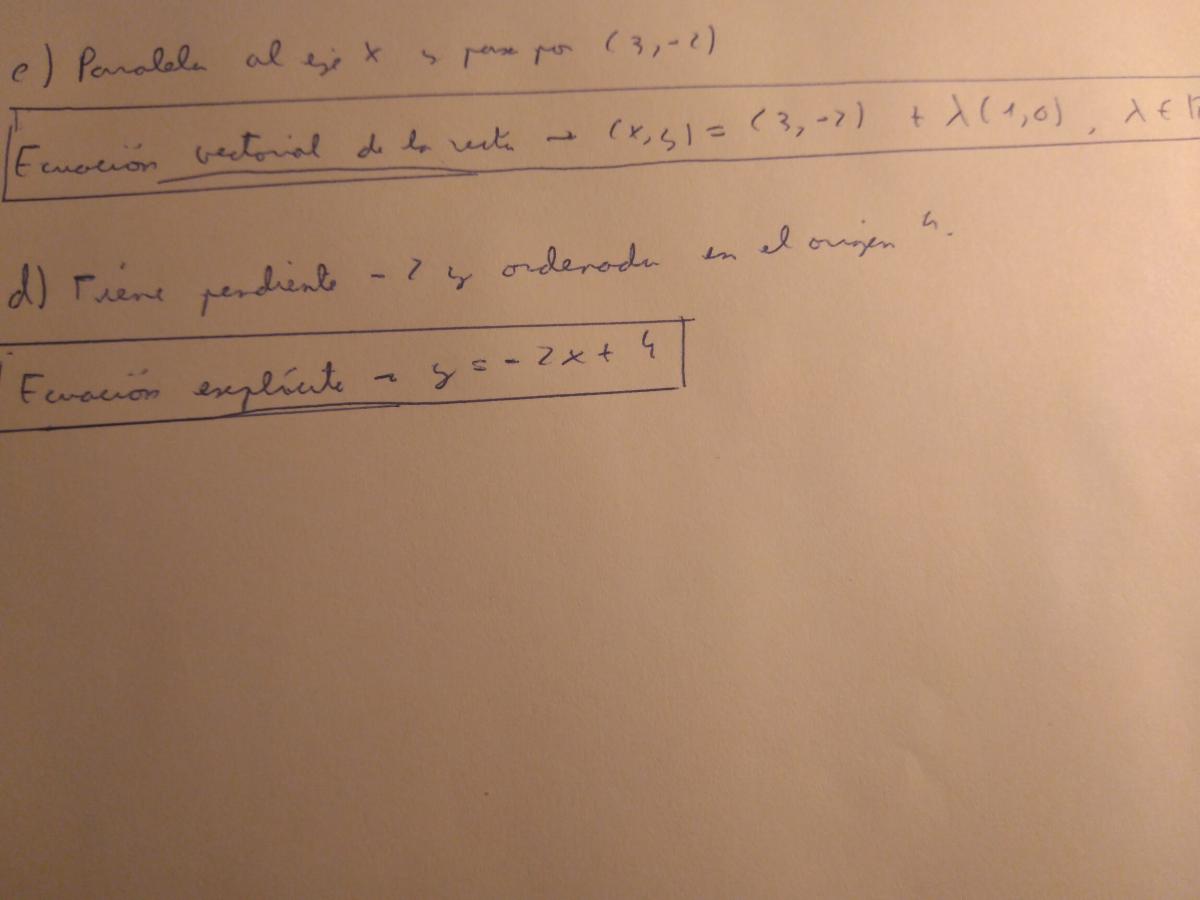 c) Paralela al eje x y pasa por (3,-2)
Ecuación vectorial de la recta → (x,y) = (3,-2) + λ(1,0), λ ∈ ℝ
d) Tiene pendiente -2 y ordenada en el origen 4.
Ecuación explícita → y = -2x + 4